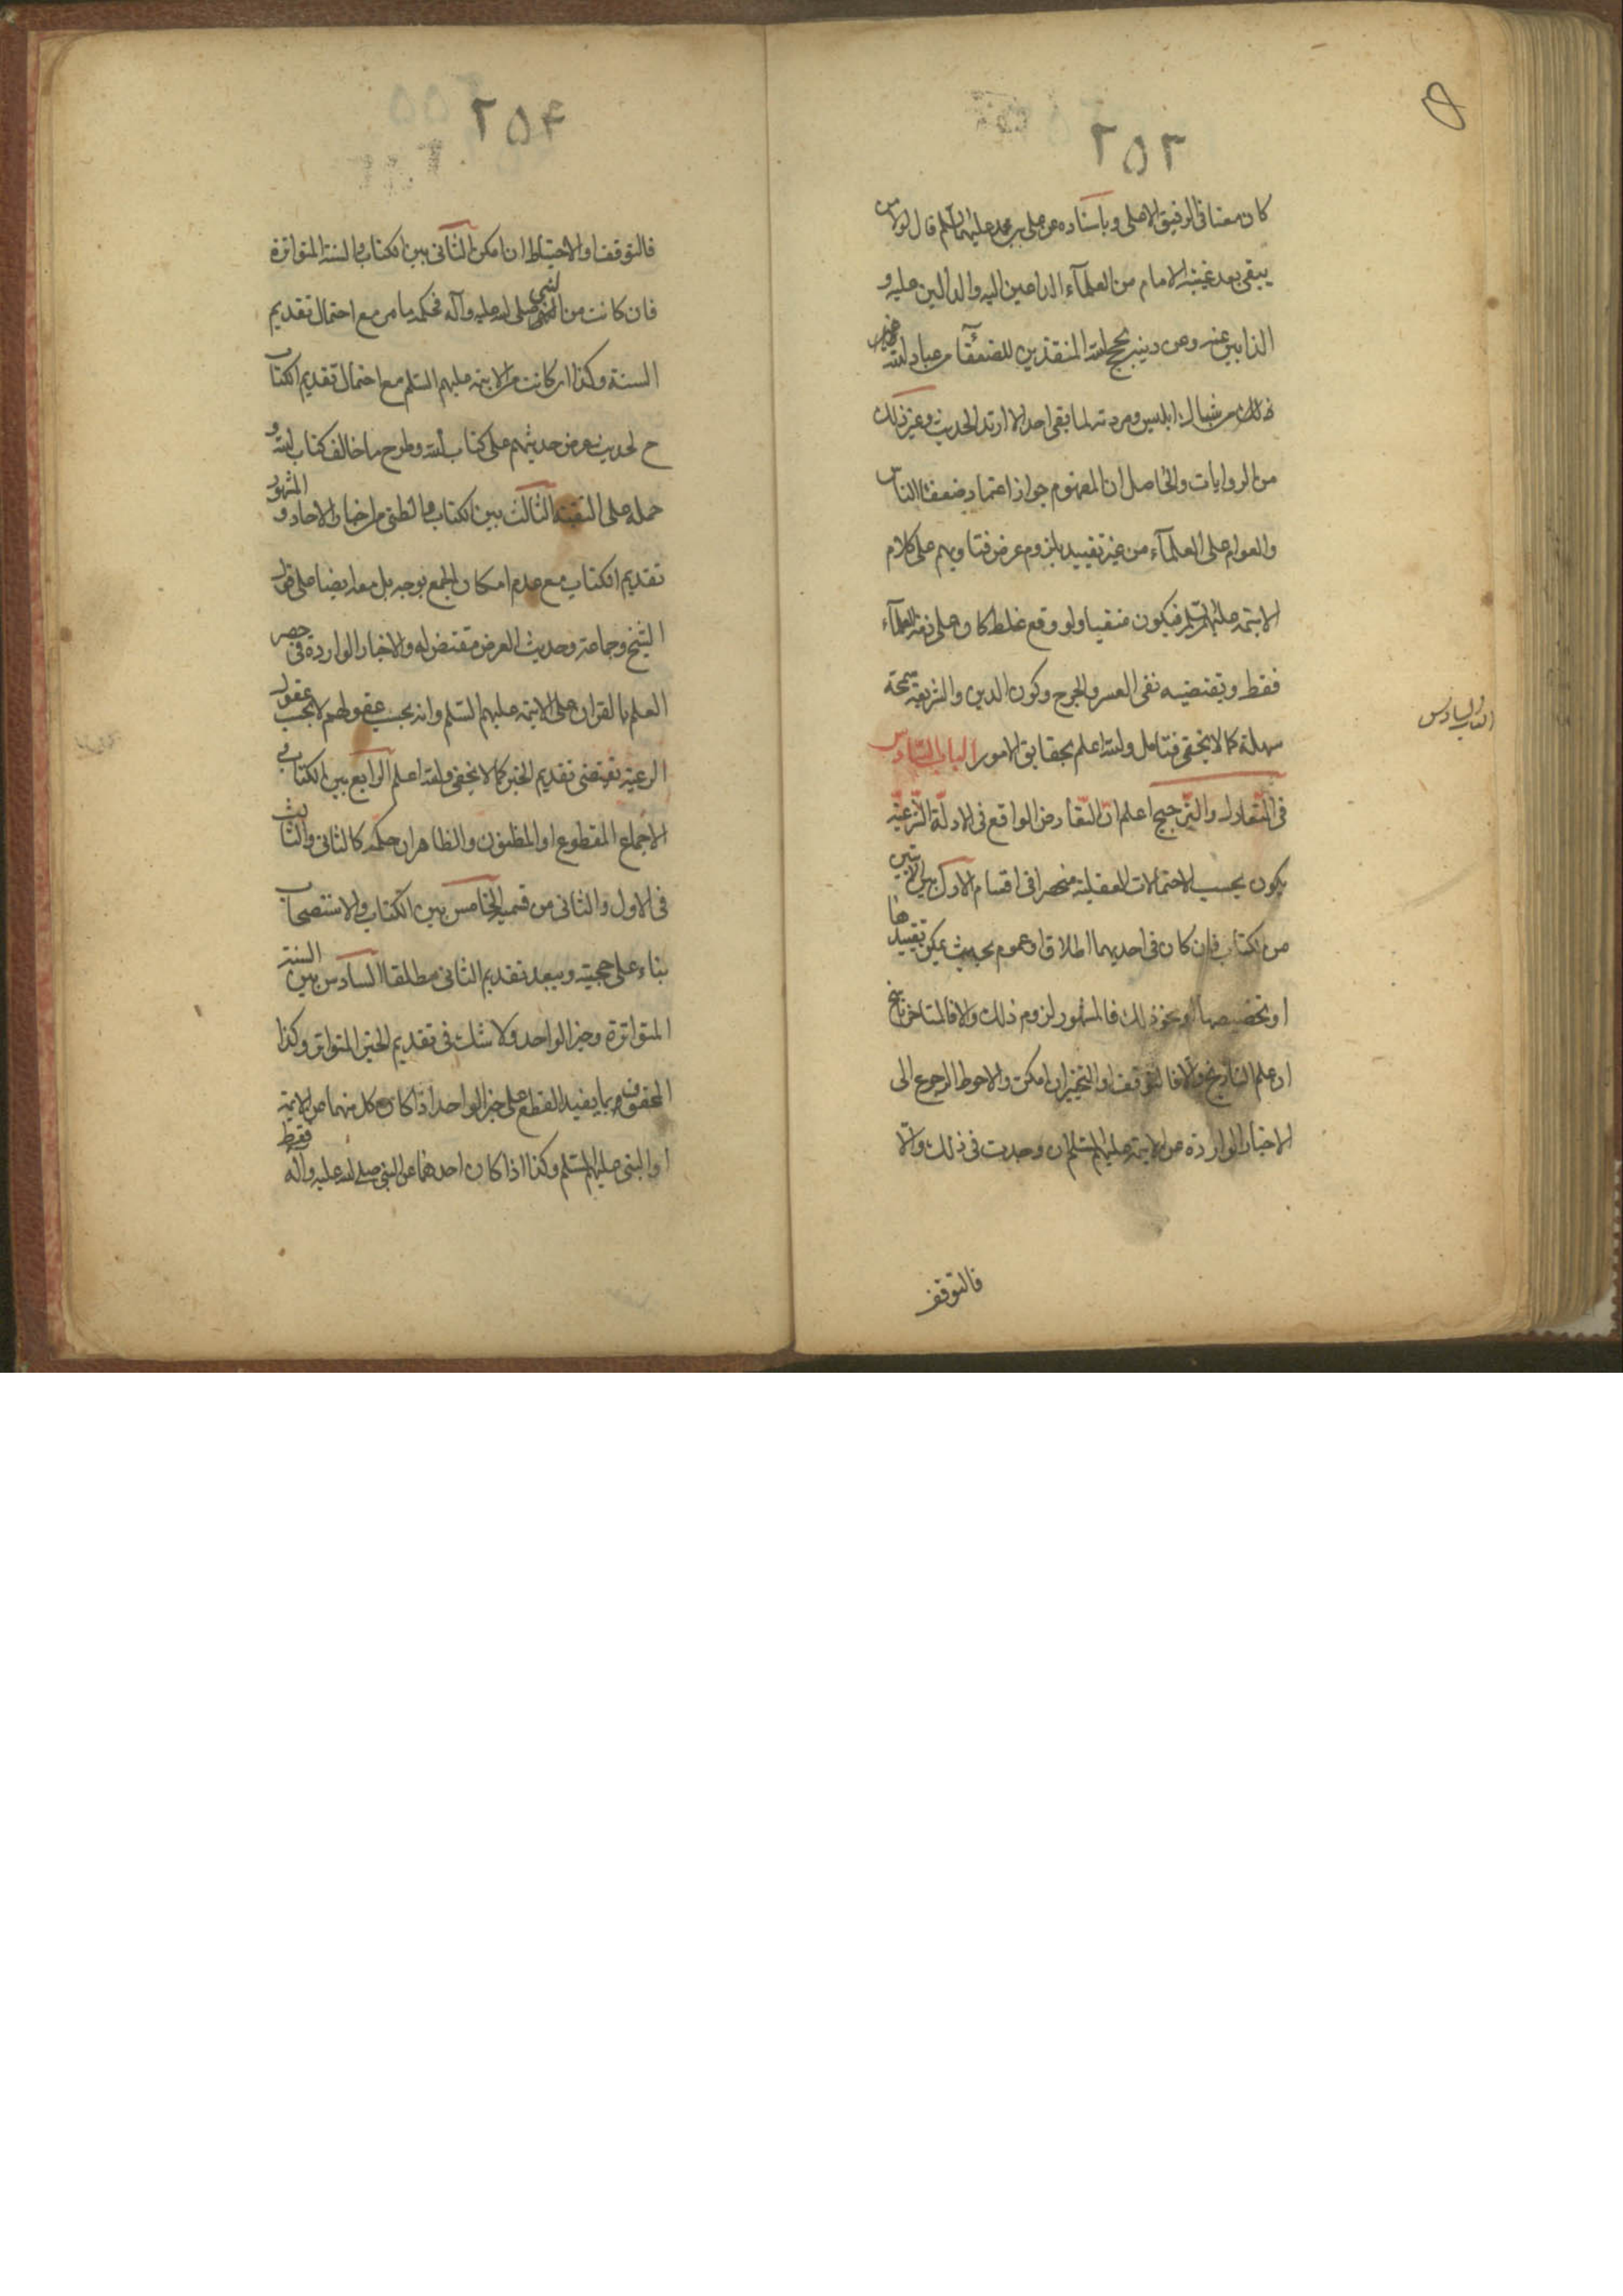 ٢٥٣
كان معنا فى الرفيق الاعلى وباسناده عن على بن محمد عليهما السلم قال لولا من
يبقى بعد غيبة الامام من العلمآء الداعين اليه والدالين عليه و
الذابين عنه وعن دينه بحجج الله المنقذين للضعفآ من عباد الله
شباك ابليس ومردته لما بقى احد الا ارتد الحديث وغير ذلك
من الروايات والحاصل ان المفهوم جواز اعتماد ضعفا الناس
والعوام على العلمآء من غير تقييد بلزوم عرض فتاويهم على كلام
الائمة عليهم السلم فيكون منفيا ولو وقع غلط كان على ذمة العلمآء
فقط ويقتضيه نفى العسر والحرج وكون الدين والشريعة سمحة
سهلة كما لا يخفى فتامل والله اعلم بحقايق الامور الباب السادس
الباب السادس
فى التعادل والترجيح اعلم ان التعارض الواقع فى الادلة الشرعية
يكون بحسب الاحتمالات العقلية منحصرا فى اقسام الاول بين الايتين
من الكتاب فان كان فى احديهما اطلاق او عموم بحيث يمكن تقييدها
او تخصيصها او نحو ذلك فالمشهور لزوم ذلك والا فالمتاخر ناسخ
ان علم التاريخ والا فالتوقف او التخيير ان امكن والاحوط الرجوع الى
الاخبار الواردة عن الائمة عليهم السلم ان وجدت فى ذلك والا
فالتوقف
٢٥٤
فالتوقف او الاحتياط ان امكن الثانى بين الكتاب والسنة المتواترة
فان كانت من النبى صلى الله عليه وآله فحكمه ما مر مع احتمال تقديم
السنة وكذا ان كانت من الائمة عليهم السلم مع احتمال تقديم الكتاب
ح لحديث عرض حديثهم على كتاب الله وطرح ما خالف كتاب الله و
حمله على التقية الثالث بين الكتاب والظنى من اخبار الاحاد و المشهور
تقديم الكتاب مع عدم امكان الجمع بوجه بل معه ايضا على قول
الشيخ وجماعة وحديث العرض مقتض له والاخبار الواردة فى حصر
العلم بالقران على الائمة عليهم السلم وانه بحسب عقولهم لا بحسب عقول
الرعية تقتضى تقديم الخبر كما لا يخفى والله اعلم الرابع بين الكتاب و
الاجماع المقطوع او المظنون والظاهر ان حكمه كالثانى والثالث
فى الاول والثانى من قسميه الخامس بين الكتاب والاستصحاب
بناء على حجيته ويبعد تقديم الثانى مطلقا السادس بين السنة
المتواترة وخبر الواحد ولا شك فى تقديم الخبر المتواتر وكذا
المحفوف بما يفيد القطع على خبر الواحد اذا كان كل منهما من الائمة فقط
او النبى عليهم السلم وكذا اذا كان احدهما عن النبى صلى الله عليه وآله